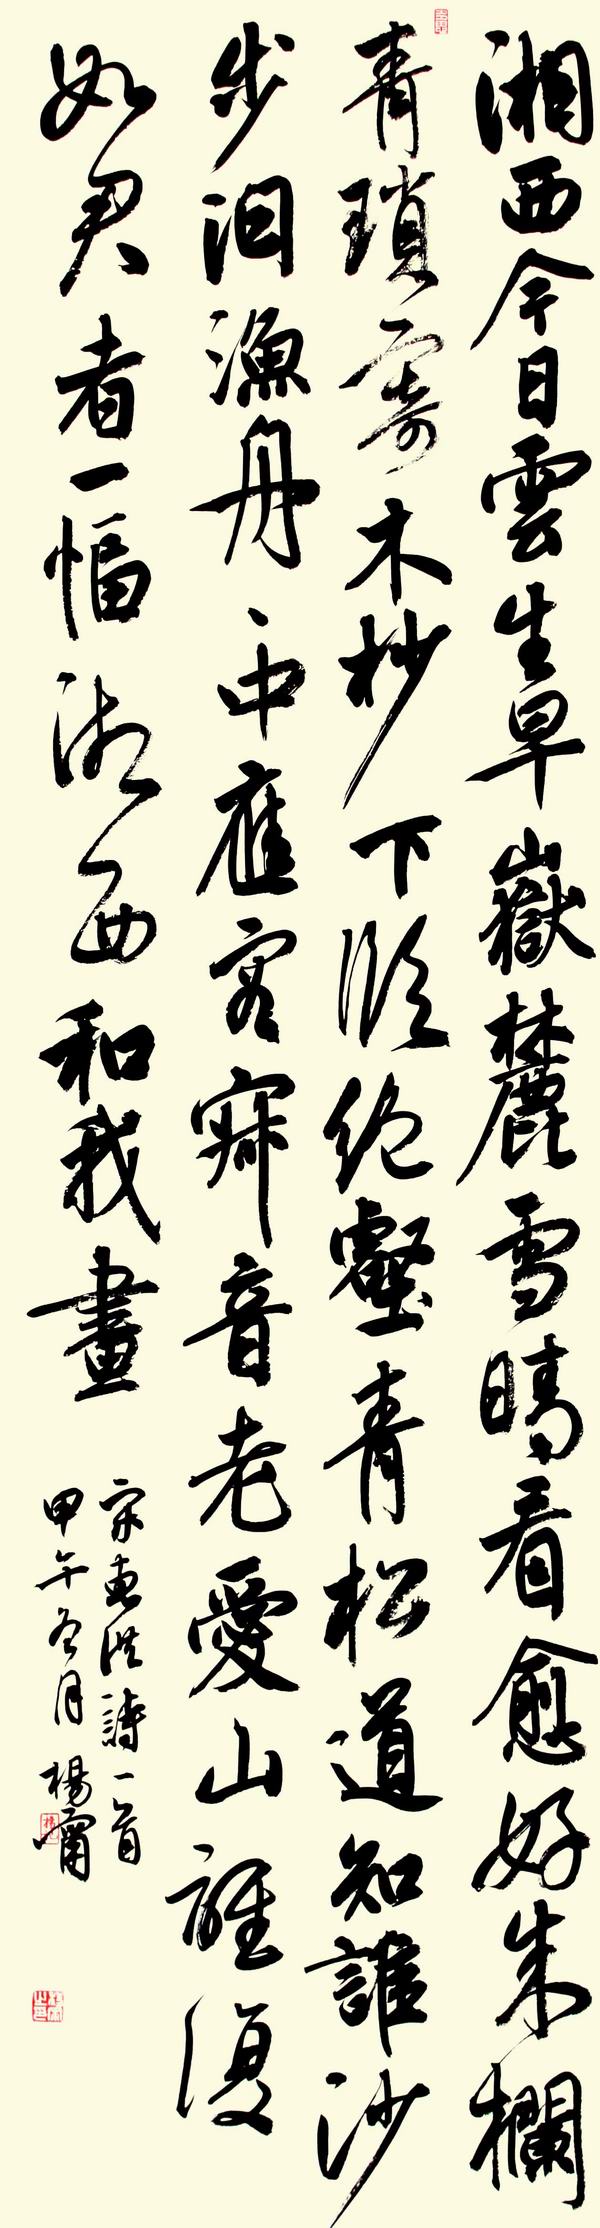 湘西今日雲生早嶽麓雪晴看愈好朱欄
青瑣寄木杪下臨絶壑青松道知誰沙
步泪漁舟中應客寂音老愛山誰復
如君者一幅湘西和我畫
宋惠洪詩一首
甲午冬月楊甯